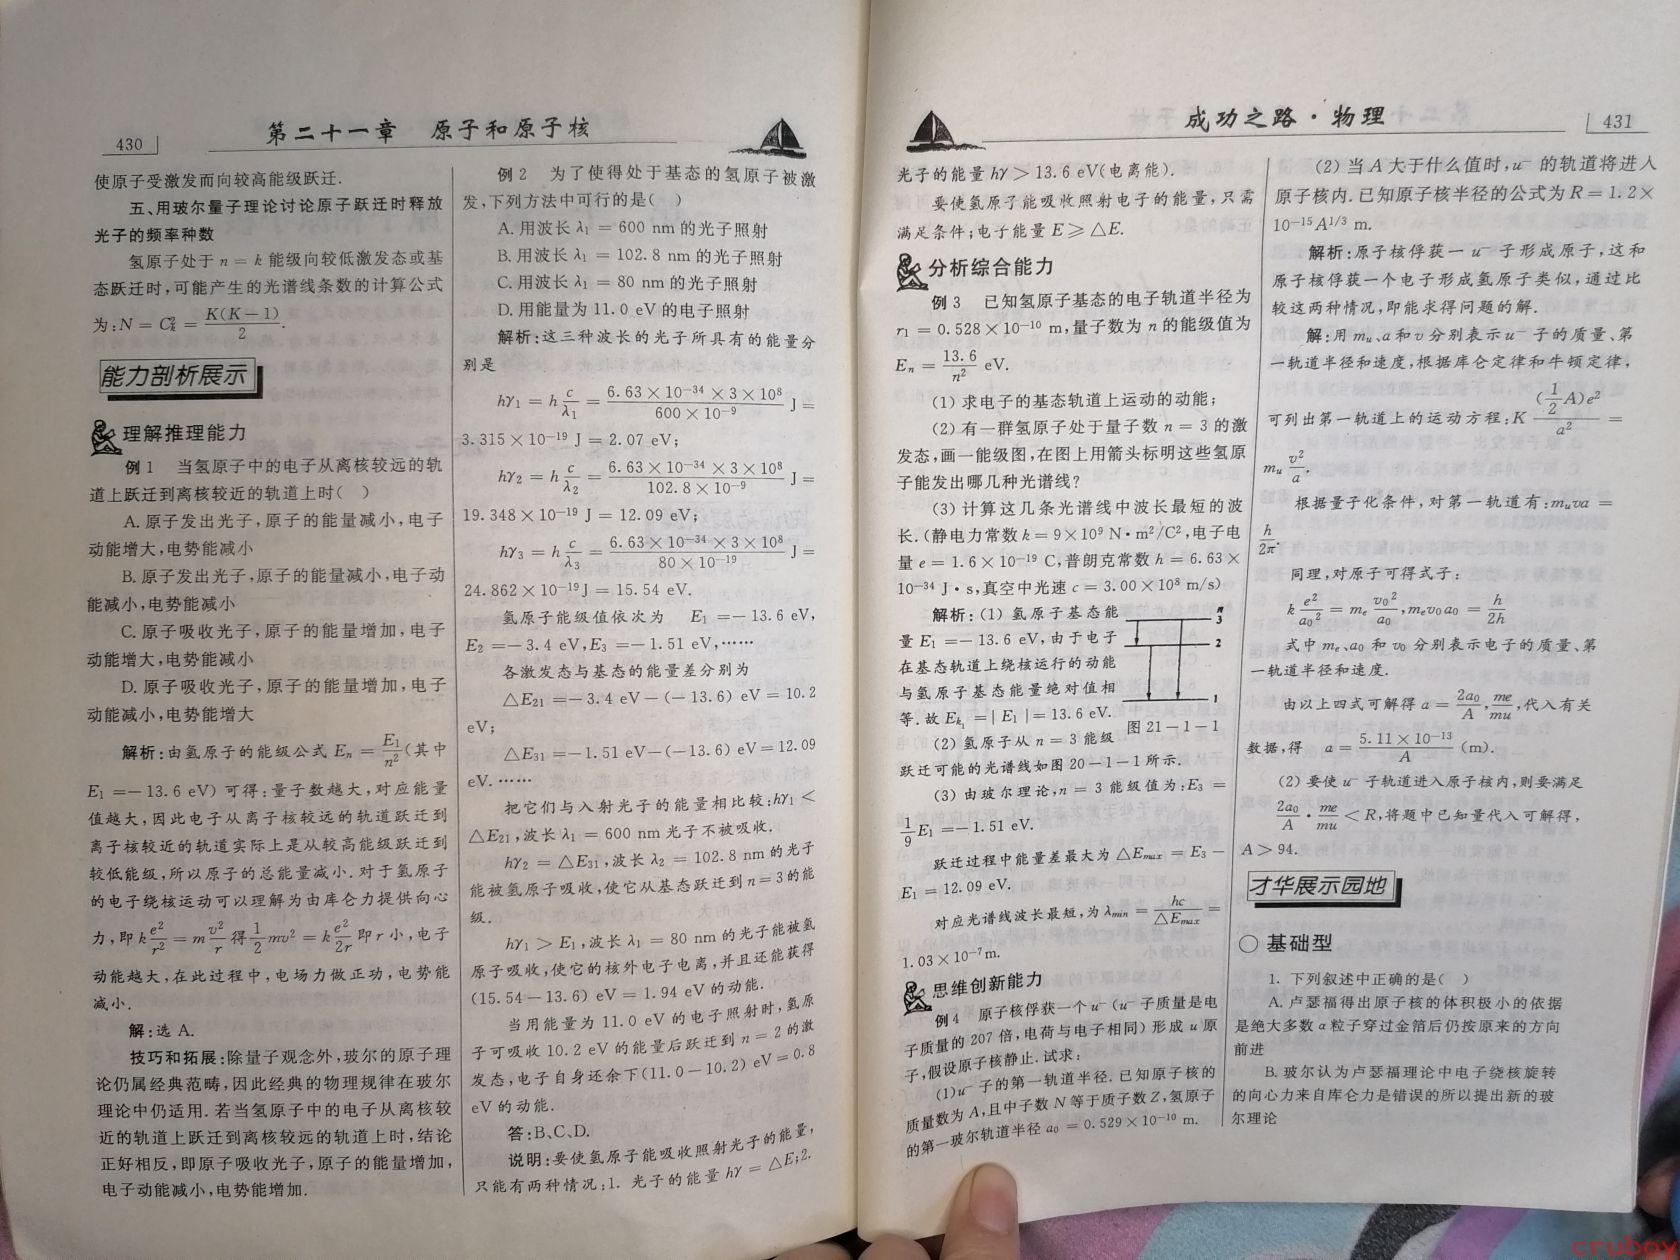 430
第二十一章 原子和原子核
使原子受激发而向较高能级跃迁.
五、用玻尔量子理论讨论原子跃迁时释放
光子的频率种数
氢原子处于 n = k 能级向较低激发态或基
态跃迁时,可能产生的光谱线条数的计算公式
为:N = C²ₖ = K(K-1)/2.
能力剖析展示
理解推理能力
例 1 当氢原子中的电子从离核较远的轨
道上跃迁到离核较近的轨道上时( )
A. 原子发出光子,原子的能量减小,电子
动能增大,电势能减小
B. 原子发出光子,原子的能量减小,电子动
能减小,电势能减小
C. 原子吸收光子,原子的能量增加,电子
动能增大,电势能减小
D. 原子吸收光子,原子的能量增加,电子
动能减小,电势能增大
解析:由氢原子的能级公式 Eₙ = E₁/n²(其中
E₁ =- 13.6 eV) 可得:量子数越大,对应能量
值越大,因此电子从离子核较远的轨道跃迁到
离子核较近的轨道实际上是从较高能级跃迁到
较低能级,所以原子的总能量减小. 对于氢原子
的电子绕核运动可以理解为由库仑力提供向心
力,即 k e²/r² = m v²/r 得 1/2 mv² = k e²/2r 即 r 小,电子
动能越大,在此过程中,电场力做正功,电势能
减小.
解:选 A.
技巧和拓展:除量子观念外,玻尔的原子理
论仍属经典范畴,因此经典的物理规律在玻尔
理论中仍适用. 若当氢原子中的电子从离核较
近的轨道上跃迁到离核较远的轨道上时,结论
正好相反,即原子吸收光子,原子的能量增加,
电子动能减小,电势能增加.
例 2 为了使得处于基态的氢原子被激
发,下列方法中可行的是( )
A. 用波长 λ₁ = 600 nm 的光子照射
B. 用波长 λ₁ = 102.8 nm 的光子照射
C. 用波长 λ₁ = 80 nm 的光子照射
D. 用能量为 11.0 eV 的电子照射
解析:这三种波长的光子所具有的能量分
别是
hγ₁ = h c/λ₁ = 6.63×10⁻³⁴×3×10⁸/600×10⁻⁹ J =
3.315×10⁻¹⁹ J = 2.07 eV;
hγ₂ = h c/λ₂ = 6.63×10⁻³⁴×3×10⁸/102.8×10⁻⁹ J =
19.348×10⁻¹⁹ J = 12.09 eV;
hγ₃ = h c/λ₃ = 6.63×10⁻³⁴×3×10⁸/80×10⁻¹⁹ J =
24.862×10⁻¹⁹ J = 15.54 eV.
氢原子能级值依次为 E₁ =- 13.6 eV,
E₂ =- 3.4 eV,E₃ =- 1.51 eV,……
各激发态与基态的能量差分别为
△E₂₁ =- 3.4 eV-(- 13.6) eV = 10.2
eV;
△E₃₁ =-1.51 eV-(-13.6) eV = 12.09
eV.……
把它们与入射光子的能量相比较:hγ₁ <
△E₂₁,波长 λ₁ = 600 nm 光子不被吸收.
hγ₂ = △E₃₁,波长 λ₂ = 102.8 nm 的光子
能被氢原子吸收,使它从基态跃迁到 n=3 的能
级.
hγ₁ > E₁,波长 λ₁ = 80 nm 的光子能被氢
原子吸收,使它的核外电子电离,并且还能获得
(15.54-13.6) eV = 1.94 eV 的动能.
当用能量为 11.0 eV 的电子照射时,氢原
子可吸收 10.2 eV 的能量后跃迁到 n = 2 的激
发态,电子自身还余下(11.0-10.2) eV = 0.8
eV 的动能.
答:B、C、D.
说明:要使氢原子能吸收照射光子的能量,
只能有两种情况:1. 光子的能量 hγ = △E;2.
成功之路·物理
431
光子的能量 hγ > 13.6 eV(电离能).
要使氢原子能吸收照射电子的能量,只需
满足条件:电子能量 E ≥ △E.
分析综合能力
例 3 已知氢原子基态的电子轨道半径为
r₁ = 0.528×10⁻¹⁰ m,量子数为 n 的能级值为
Eₙ = 13.6/n² eV.
(1) 求电子的基态轨道上运动的动能;
(2) 有一群氢原子处于量子数 n = 3 的激
发态,画一能级图,在图上用箭头标明这些氢原
子能发出哪几种光谱线?
(3) 计算这几条光谱线中波长最短的波
长. (静电力常数 k = 9×10⁹ N·m²/C²,电子电
量 e = 1.6×10⁻¹⁹ C,普朗克常数 h = 6.63×
10⁻³⁴ J·s,真空中光速 c = 3.00×10⁸ m/s)
解析:(1) 氢原子基态能
量 E₁ =- 13.6 eV,由于电子
在基态轨道上绕核运行的动能
与氢原子基态能量绝对值相
等. 故 Eₖ₁ =| E₁ |= 13.6 eV.
n
3
2
1
图 21-1-1
(2) 氢原子从 n = 3 能级
跃迁可能的光谱线如图 20-1-1 所示.
(3) 由玻尔理论,n = 3 能级值为:E₃ =
1/9 E₁ =- 1.51 eV.
跃迁过程中能量差最大为 △Emax = E₃ -
E₁ = 12.09 eV.
对应光谱线波长最短,为 λmin = hc/△Emax =
1.03×10⁻⁷m.
思维创新能力
例 4 原子核俘获一个 u⁻ (u⁻ 子质量是电
子质量的 207 倍,电荷与电子相同) 形成 u 原
子,假设原子核静止. 试求:
(1)u⁻ 子的第一轨道半径. 已知原子核的
质量数为 A,且中子数 N 等于质子数 Z,氢原子
的第一玻尔轨道半径 a₀ = 0.529×10⁻¹⁰ m.
(2) 当 A 大于什么值时,u⁻ 的轨道将进入
原子核内. 已知原子核半径的公式为 R = 1.2×
10⁻¹⁵A^1/3 m.
解析:原子核俘获一 u⁻ 子形成原子,这和
原子核俘获一个电子形成氢原子类似,通过比
较这两种情况,即能求得问题的解.
解:用 mᵤ、a 和 v 分别表示 u⁻ 子的质量、第
一轨道半径和速度,根据库仑定律和牛顿定律,
可列出第一轨道上的运动方程:K (1/2 A)e²/a² =
mᵤ v²/a.
根据量子化条件,对第一轨道有:mᵤva =
h/2π.
同理,对原子可得式子:
k e²/a₀² = mₑ v₀²/a₀,mₑv₀a₀ = h/2h
式中 mₑ、a₀ 和 v₀ 分别表示电子的质量、第
一轨道半径和速度.
由以上四式可解得 a = 2a₀/A,me/mu,代入有关
数据,得 a = 5.11×10⁻¹³/A (m).
(2) 要使 u⁻ 子轨道进入原子核内,则要满足
2a₀/A · me/mu < R,将题中已知量代入可解得,
A > 94.
才华展示园地
○ 基础型
1. 下列叙述中正确的是( )
A. 卢瑟福得出原子核的体积极小的依据
是绝大多数 α 粒子穿过金箔后仍按原来的方向
前进
B. 玻尔认为卢瑟福理论中电子绕核旋转
的向心力来自库仑力是错误的所以提出新的玻
尔理论
crubox